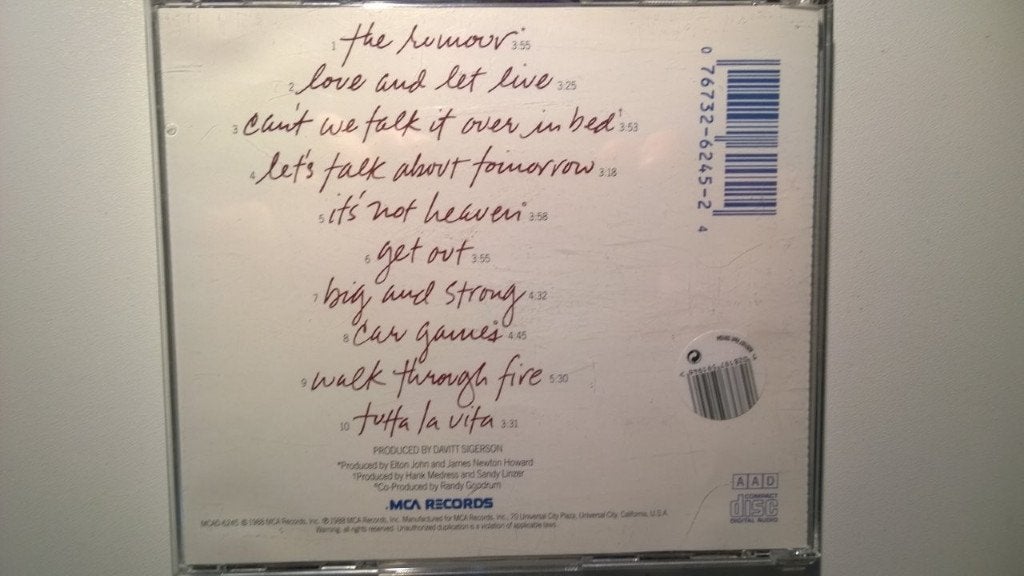 1 the rumour* 3:55
2 love and let live 3:25
3 can't we talk it over in bed† 3:53
4 let's talk about tomorrow 3:18
5 it's not heaven° 3:58
6 get out 3:55
7 big and strong 4:32
8 car games° 4:45
9 walk through fire 5:30
10 tutta la vita 3:31
PRODUCED BY DAVITT SIGERSON
*Produced by Elton John and James Newton Howard
†Produced by Hank Medress and Sandy Linzer
°Co-Produced by Randy Goodrum
MCA RECORDS
MCAD-6245 © 1988 MCA Records, Inc. ℗ 1988 MCA Records, Inc. Manufactured for MCA Records, Inc., 70 Universal City Plaza, Universal City, California, U.S.A.
Warning: all rights reserved. Unauthorized duplication is a violation of applicable laws.
0 76732-6245-2 4
AAD
COMPACT
disc
DIGITAL AUDIO